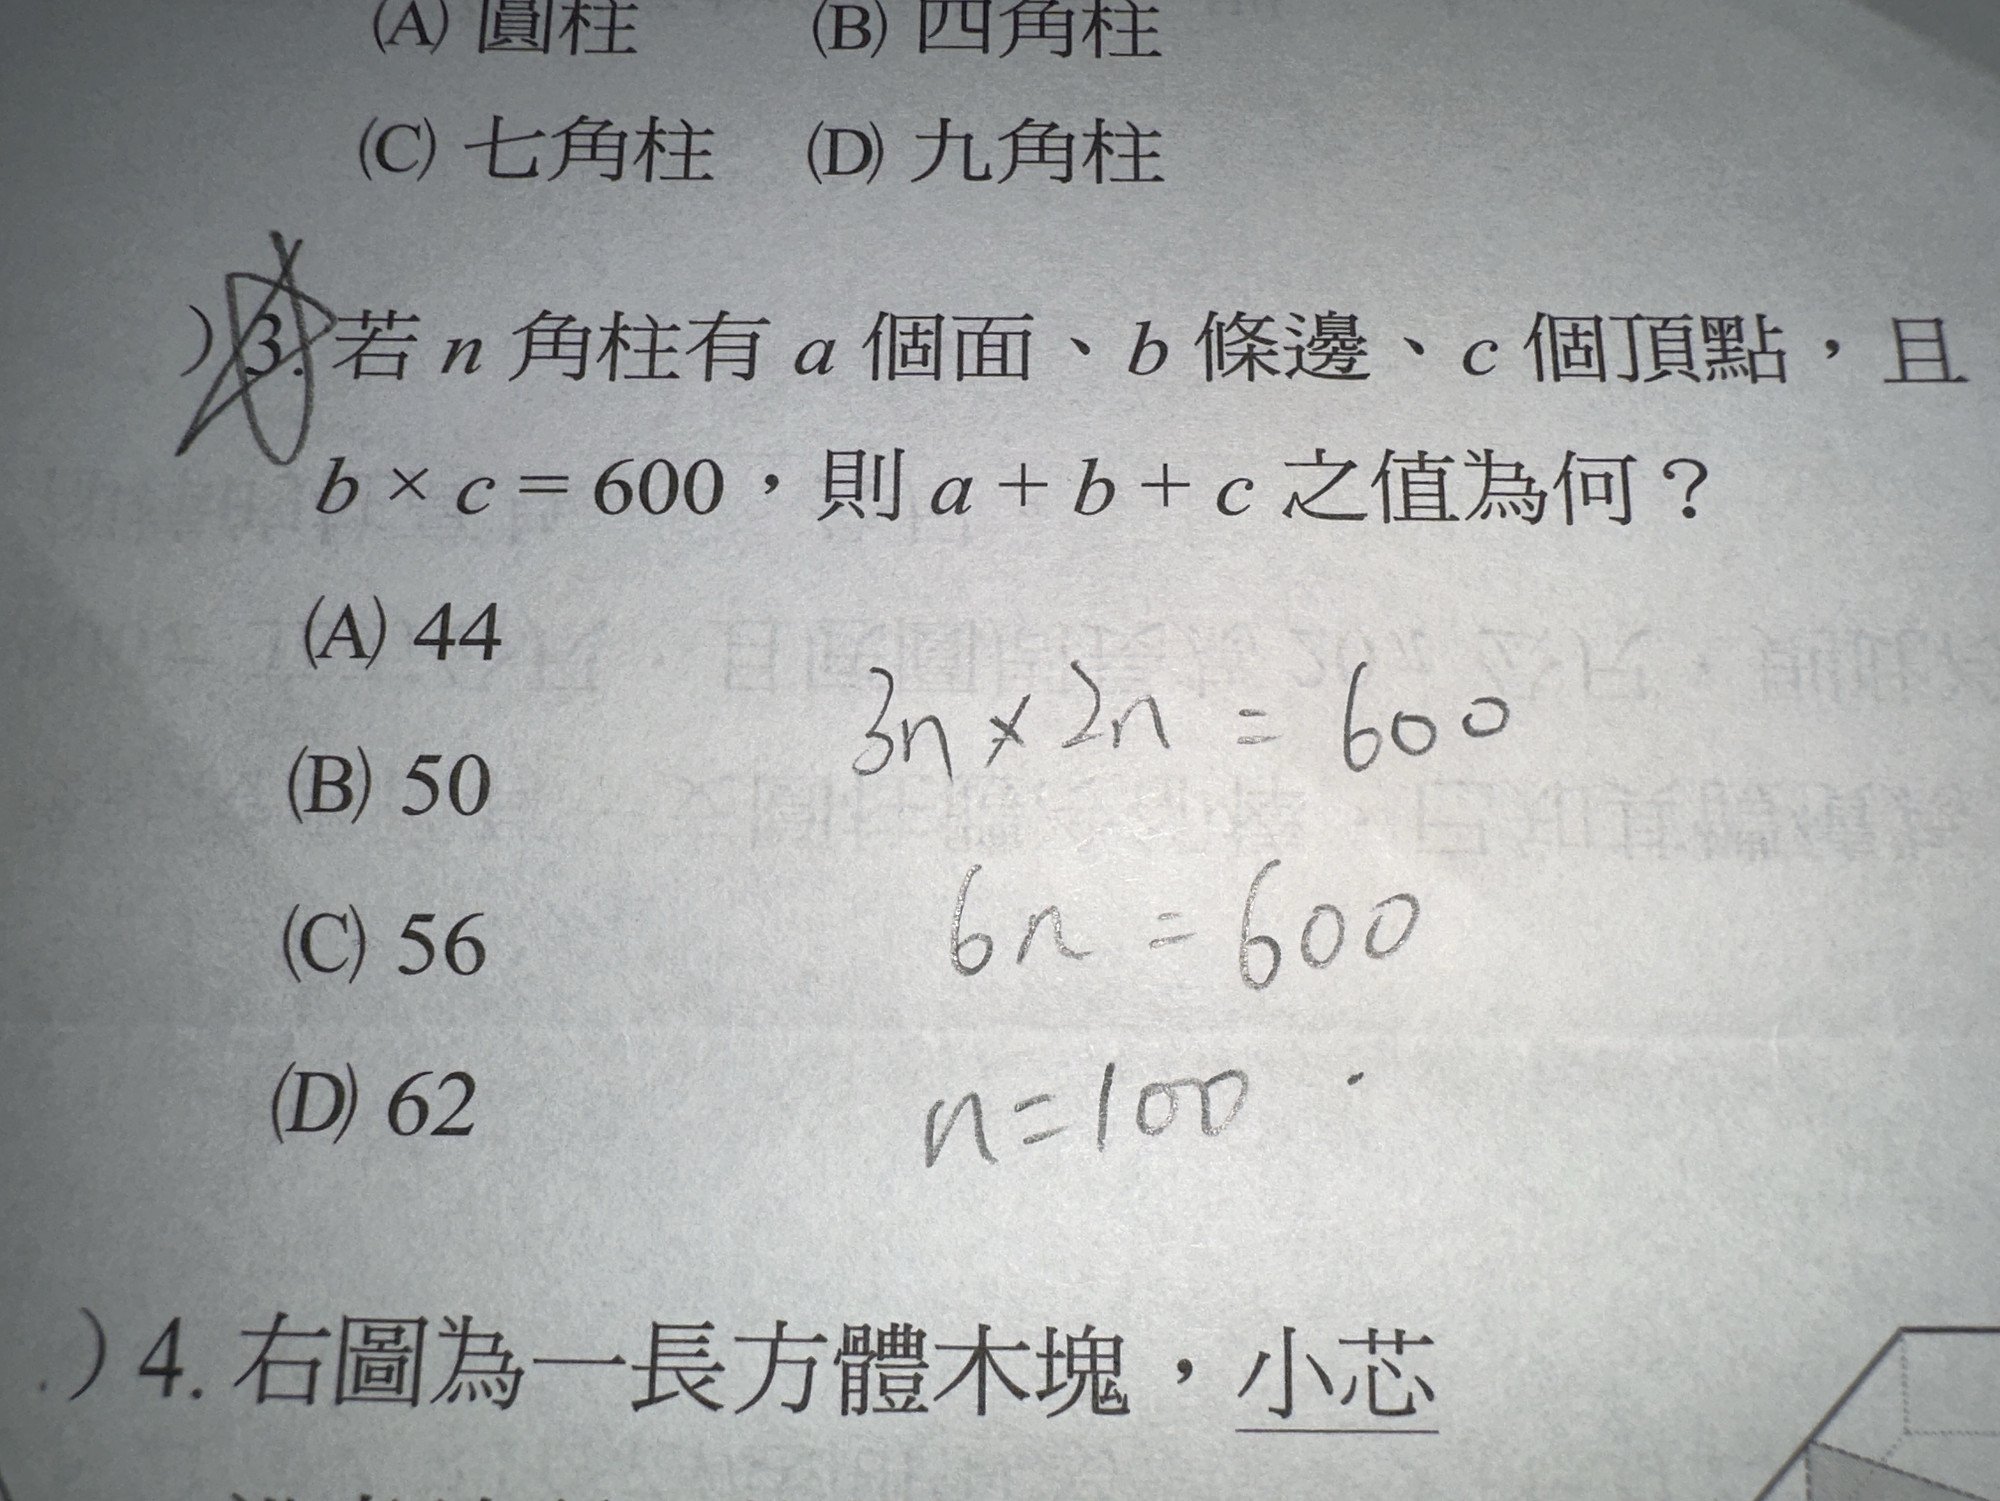 (A) 圓柱 (B) 四角柱
(C) 七角柱 (D) 九角柱
) 3. 若 n 角柱有 a 個面、b 條邊、c 個頂點，且
b × c = 600，則 a + b + c 之值為何？
(A) 44
(B) 50
(C) 56
(D) 62
3n × 2n = 600
6n = 600
n = 100
) 4. 右圖為一長方體木塊，小芯